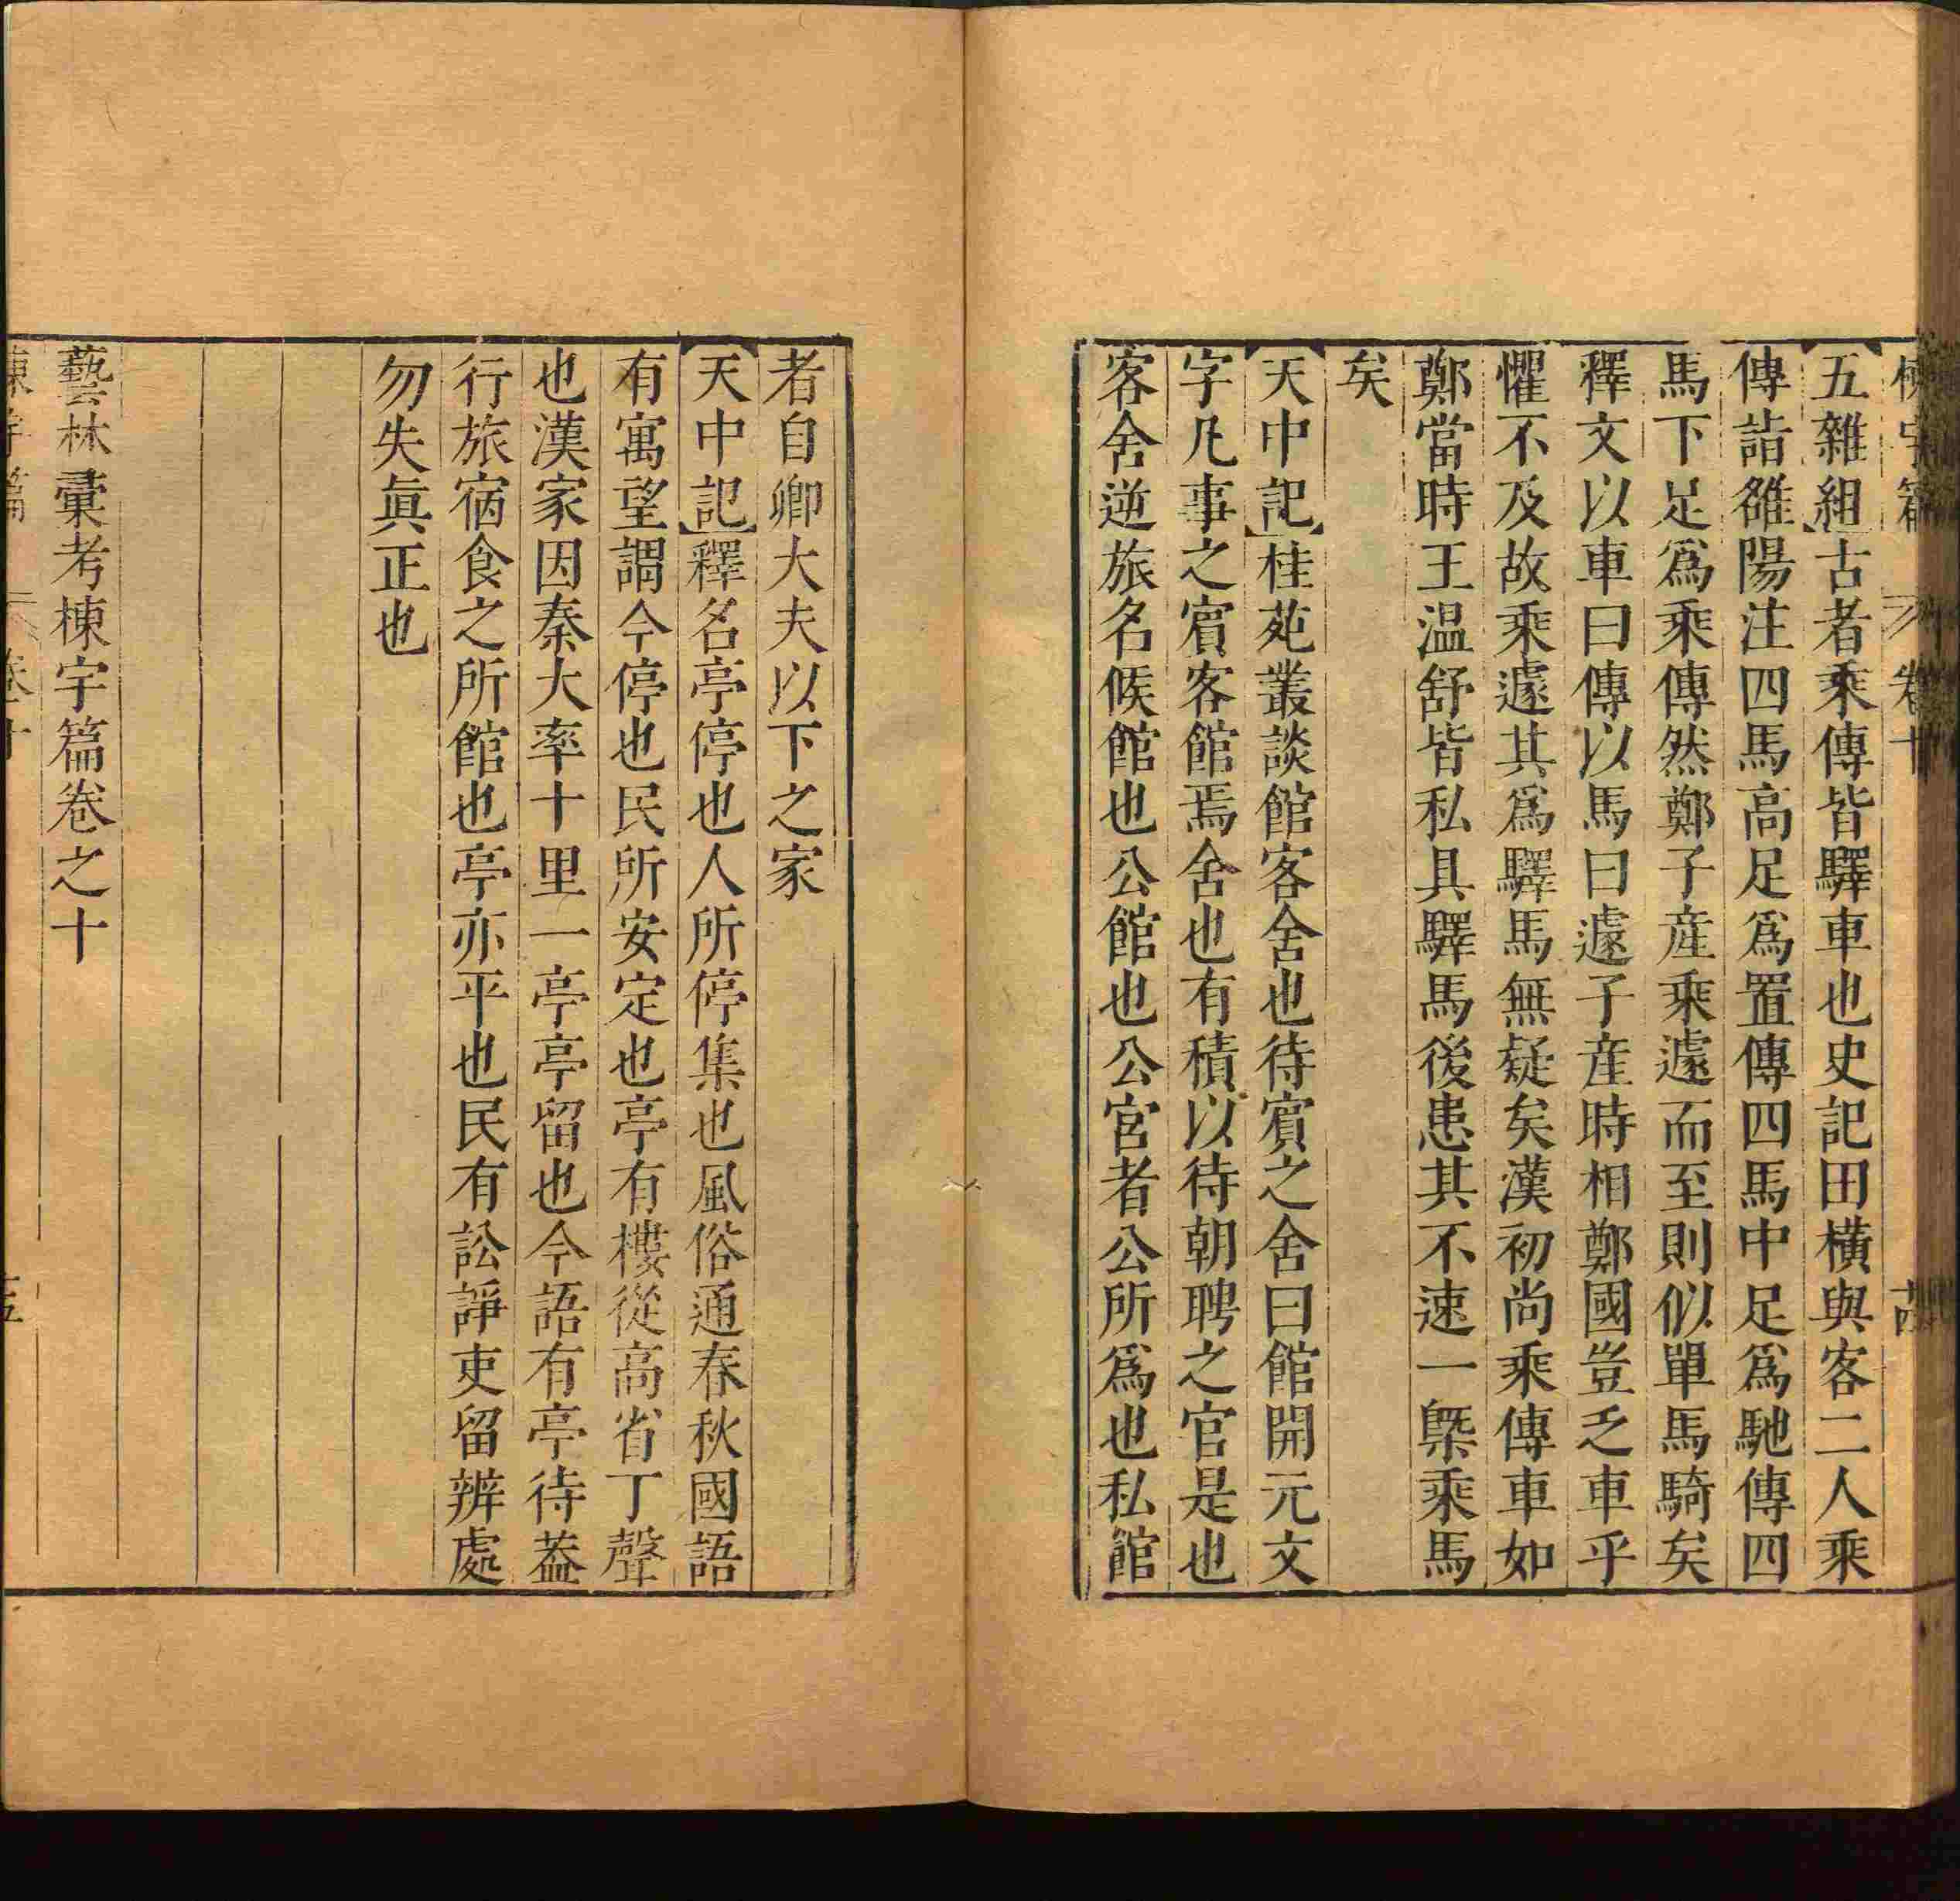 棟宇篇 卷十 十四
五雜組古者乘傳皆驛車也史記田橫與客二人乘
傳詣雒陽注四馬高足爲置傳四馬中足爲馳傳四
馬下足爲乘傳然鄭子產乘遽而至則似單馬騎矣
釋文以車曰傳以馬曰遽子產時相鄭國豈乏車乎
懼不及故乘遽其爲驛馬無疑矣漢初尚乘傳車如
鄭當時王温舒皆私具驛馬後患其不速一槩乘馬
矣
天中記桂苑叢談館客舍也待賓之舍曰館開元文
字凡事之賓客館焉舍也有積以待朝聘之官是也
客舍逆旅名候館也公館也公宮者公所爲也私館
者自卿大夫以下之家
天中記釋名亭停也人所停集也風俗通春秋國語
有寓望謂今停也民所安定也亭有樓從高省丁聲
也漢家因秦大率十里一亭亭留也今語有亭待葢
行旅宿食之所館也亭亦平也民有訟諍吏留辨處
勿失眞正也
藝林彙考棟宇篇卷之十
棟宇篇 卷十 十五